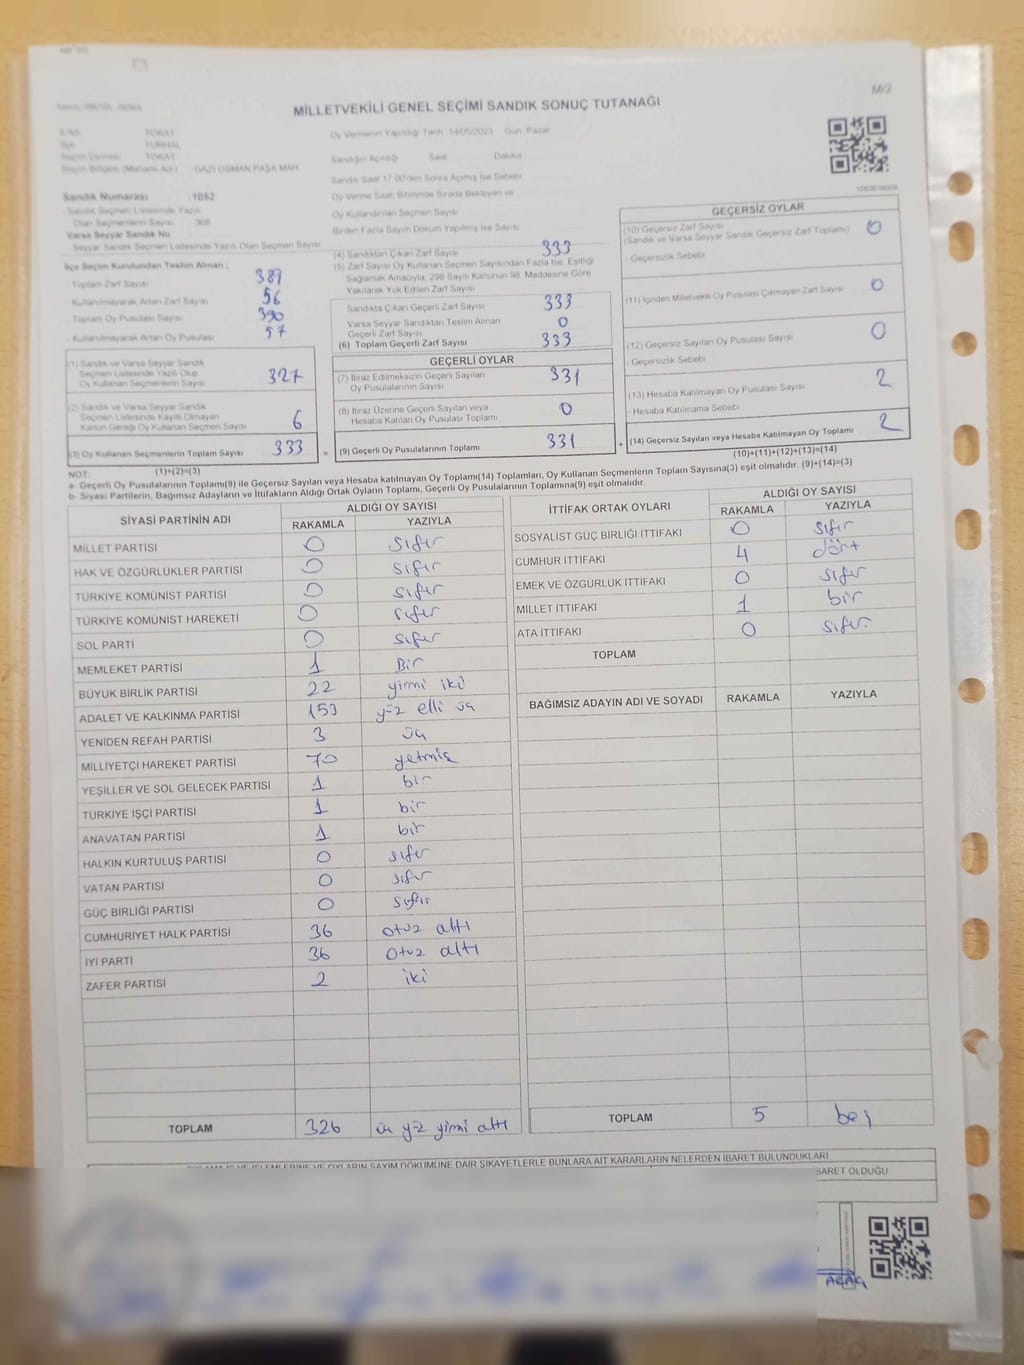 M/2
MİLLETVEKİLİ GENEL SEÇİMİ SANDIK SONUÇ TUTANAĞI
TOKAT
TURHAL
TOKAT
GAZİ OSMAN PAŞA MAH
Sandık Numarası : 1052
- Sandık Seçmen Listesinde Yazılı
Olan Seçmenlerin Sayısı : 368
Varsa Seyyar Sandık No
Seyyar Sandık Seçmen Listesinde Yazılı Olan Seçmen Sayısı
İlçe Seçim Kurulundan Teslim Alınan ;
Toplam Zarf Sayısı 389
- Kullanılmayarak Artan Zarf Sayısı 56
- Toplam Oy Pusulası Sayısı 390
- Kullanılmayarak Artan Oy Pusulası 57
(1) Sandık ve Varsa Seyyar Sandık
Seçmen Listesinde Yazılı Olup
Oy Kullanan Seçmenlerin Sayısı 327
(2) Sandık ve Varsa Seyyar Sandık
Seçmen Listesinde Kayıtlı Olmayan
Kanun Gereği Oy Kullanan Seçmen Sayısı 6
(3) Oy Kullanan Seçmenlerin Toplam Sayısı 333
(1)+(2)=(3)
Oy Vermenin Yapıldığı Tarih :14/05/2023 Gün: Pazar
Sandığın Açıldığı Saat Dakika
Sandık Saat 17.00'den Sonra Açılmış İse Sebebi
Oy Verme Saati Bitiminde Sırada Bekleyen ve
Oy Kullandırılan Seçmen Sayısı
Birden Fazla Sayım Döküm Yapılmış İse Sayısı
(4) Sandıktan Çıkan Zarf Sayısı 333
(5) Zarf Sayısı Oy Kullanan Seçmen Sayısından Fazla İse, Eşitliği
Sağlamak Amacıyla, 298 Sayılı Kanunun 98. Maddesine Göre
Yakılarak Yok Edilen Zarf Sayısı
Sandıkta Çıkan Geçerli Zarf Sayısı 333
Varsa Seyyar Sandıktan Teslim Alınan
Geçerli Zarf Sayısı 0
(6) Toplam Geçerli Zarf Sayısı 333
GEÇERLİ OYLAR
(7) İtiraz Edilmeksizin Geçerli Sayılan
Oy Pusulalarının Sayısı 331
(8) İtiraz Üzerine Geçerli Sayılan veya
Hesaba Katılan Oy Pusulası Toplamı 0
= (9) Geçerli Oy Pusulalarının Toplamı 331
GEÇERSİZ OYLAR
(10) Geçersiz Zarf Sayısı
(Sandık ve Varsa Seyyar Sandık Geçersiz Zarf Toplamı) 0
- Geçersizlik Sebebi
(11) İçinden Milletvekili Oy Pusulası Çıkmayan Zarf Sayısı 0
(12) Geçersiz Sayılan Oy Pusulası Sayısı 0
- Geçersizlik Sebebi
(13) Hesaba Katılmayan Oy Pusulası Sayısı 2
- Hesaba Katılmama Sebebi
+ (14) Geçersiz Sayılan veya Hesaba Katılmayan Oy Toplamı 2
(10)+(11)+(12)+(13)=(14)
NOT:
a- Geçerli Oy Pusulalarının Toplamı(9) ile Geçersiz Sayılan veya Hesaba katılmayan Oy Toplamı(14) Toplamları, Oy Kullanan Seçmenlerin Toplam Sayısına(3) eşit olmalıdır. (9)+(14)=(3)
b- Siyasi Partilerin, Bağımsız Adayların ve İttifakların Aldığı Ortak Oyların Toplamı, Geçerli Oy Pusulalarının Toplamına(9) eşit olmalıdır.
SİYASİ PARTİNİN ADI ALDIĞI OY SAYISI
RAKAMLA YAZIYLA
MİLLET PARTİSİ 0 sıfır
HAK VE ÖZGÜRLÜKLER PARTİSİ 0 sıfır
TÜRKİYE KOMÜNİST PARTİSİ 0 sıfır
TÜRKİYE KOMÜNİST HAREKETİ 0 sıfır
SOL PARTİ 0 sıfır
MEMLEKET PARTİSİ 1 Bir
BÜYÜK BİRLİK PARTİSİ 22 yirmi iki
ADALET VE KALKINMA PARTİSİ 153 yüz elli üç
YENİDEN REFAH PARTİSİ 3 üç
MİLLİYETÇİ HAREKET PARTİSİ 70 yetmiş
YEŞİLLER VE SOL GELECEK PARTİSİ 1 bir
TÜRKİYE İŞÇİ PARTİSİ 1 bir
ANAVATAN PARTİSİ 1 bir
HALKIN KURTULUŞ PARTİSİ 0 sıfır
VATAN PARTİSİ 0 sıfır
GÜÇ BİRLİĞİ PARTİSİ 0 sıfır
CUMHURİYET HALK PARTİSİ 36 otuz altı
İYİ PARTİ 36 otuz altı
ZAFER PARTİSİ 2 iki
TOPLAM 326 üç yüz yirmi altı
İTTİFAK ORTAK OYLARI ALDIĞI OY SAYISI
RAKAMLA YAZIYLA
SOSYALİST GÜÇ BİRLİĞİ İTTİFAKI 0 sıfır
CUMHUR İTTİFAKI 4 dört
EMEK VE ÖZGÜRLÜK İTTİFAKI 0 sıfır
MİLLET İTTİFAKI 1 bir
ATA İTTİFAKI 0 sıfır
TOPLAM
BAĞIMSIZ ADAYIN ADI VE SOYADI RAKAMLA YAZIYLA
TOPLAM 5 beş
DÖKÜMÜNE DAİR ŞİKAYETLERLE BUNLARA AİT KARARLARIN NELERDEN İBARET BULUNDUKLARI
BARET OLDUĞU